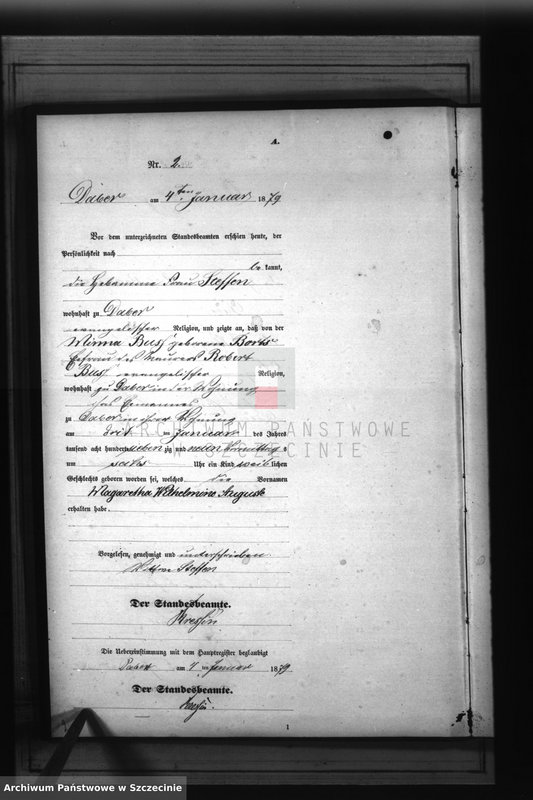 A.
Nr. 2.
Daber am 4ten Januar 1879
Vor dem unterzeichneten Standesbeamten erschien heute, der
Persönlichkeit nach
be kannt,
die Hebamme Frau Steffen
wohnhaft zu Daber
evangelischer Religion, und zeigte an, daß von der
Minna Buß geborene
Ehefrau des Maurers Robert
Buß evangelischer Religion,
wohnhaft zu Daber in der Wohnung
ihres Ehemannes
zu Daber in ihrer Wohnung
am drit ten Januar des Jahres
tausend acht hundert sieben zig und neun Vormittag
um sechs Uhr ein Kind weib lichen
Geschlechts geboren worden sei, welches die Vornamen
Magaretha Wilhelmine Auguste
erhalten habe.
Vorgelesen, genehmigt und unterschrieben
Wittwe Steffen
Der Standesbeamte.
Die Uebereinstimmung mit dem Hauptregister beglaubigt
Daber am 4 ten Januar 1879
Der Standesbeamte.
1
ARCHIWUM PAŃSTWOWE
W SZCZECINIE
Archiwum Państwowe w Szczecinie